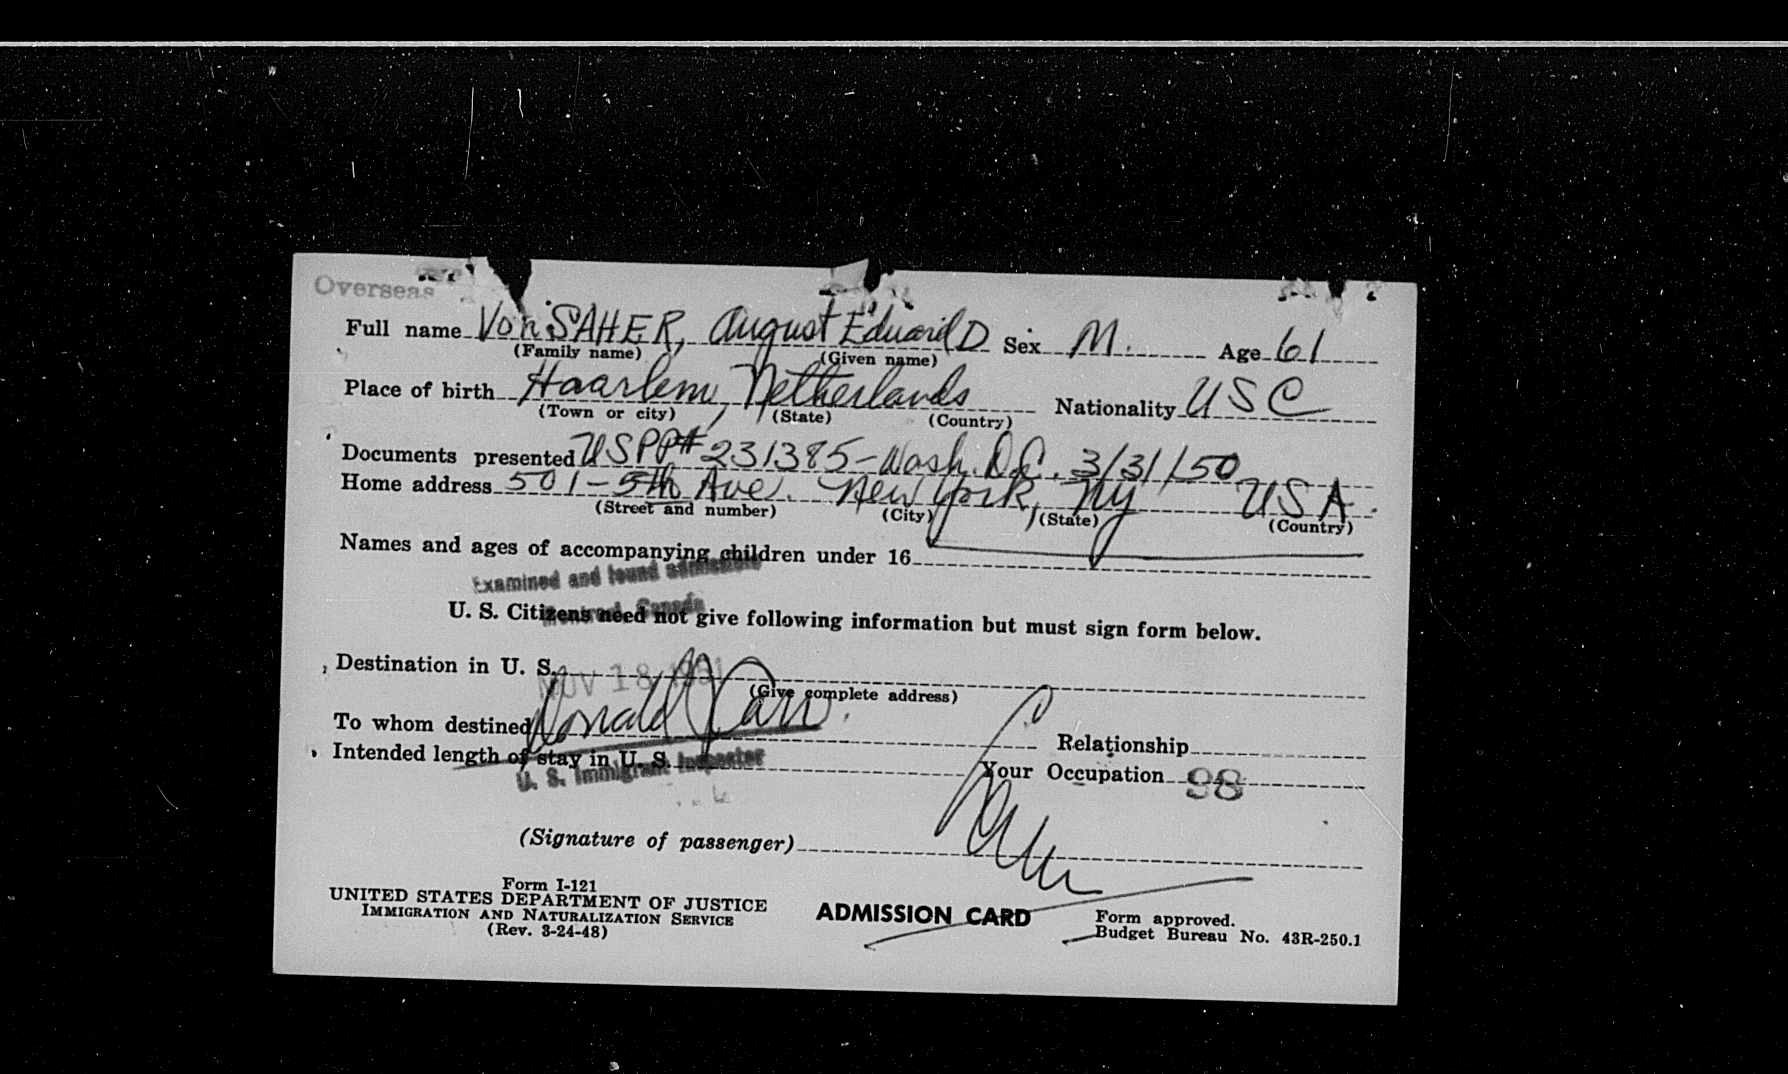 Overseas
Full name Von SAHER, August EduarD Sex M. Age 61
(Family name) (Given name)
Place of birth Haarlem, Netherlands Nationality USC
(Town or city) (State) (Country)
Documents presented USPP# 231385-Wash. D.C. 3/31/50
Home address 501-5th Ave. New York, Ny USA.
(Street and number) (City) (State) (Country)
Names and ages of accompanying children under 16
Examined and found admissible
Montreal, Canada
U. S. Citizens need not give following information but must sign form below.
Destination in U. S.
NOV 18 1951
(Give complete address)
To whom destined Relationship
Donald J Carr.
Intended length of stay in U. S. Your Occupation 98
U. S. Immigrant Inspector
(Signature of passenger)
Form I-121
UNITED STATES DEPARTMENT OF JUSTICE
IMMIGRATION AND NATURALIZATION SERVICE
(Rev. 3-24-48)
ADMISSION CARD
Form approved.
Budget Bureau No. 43R-250.1